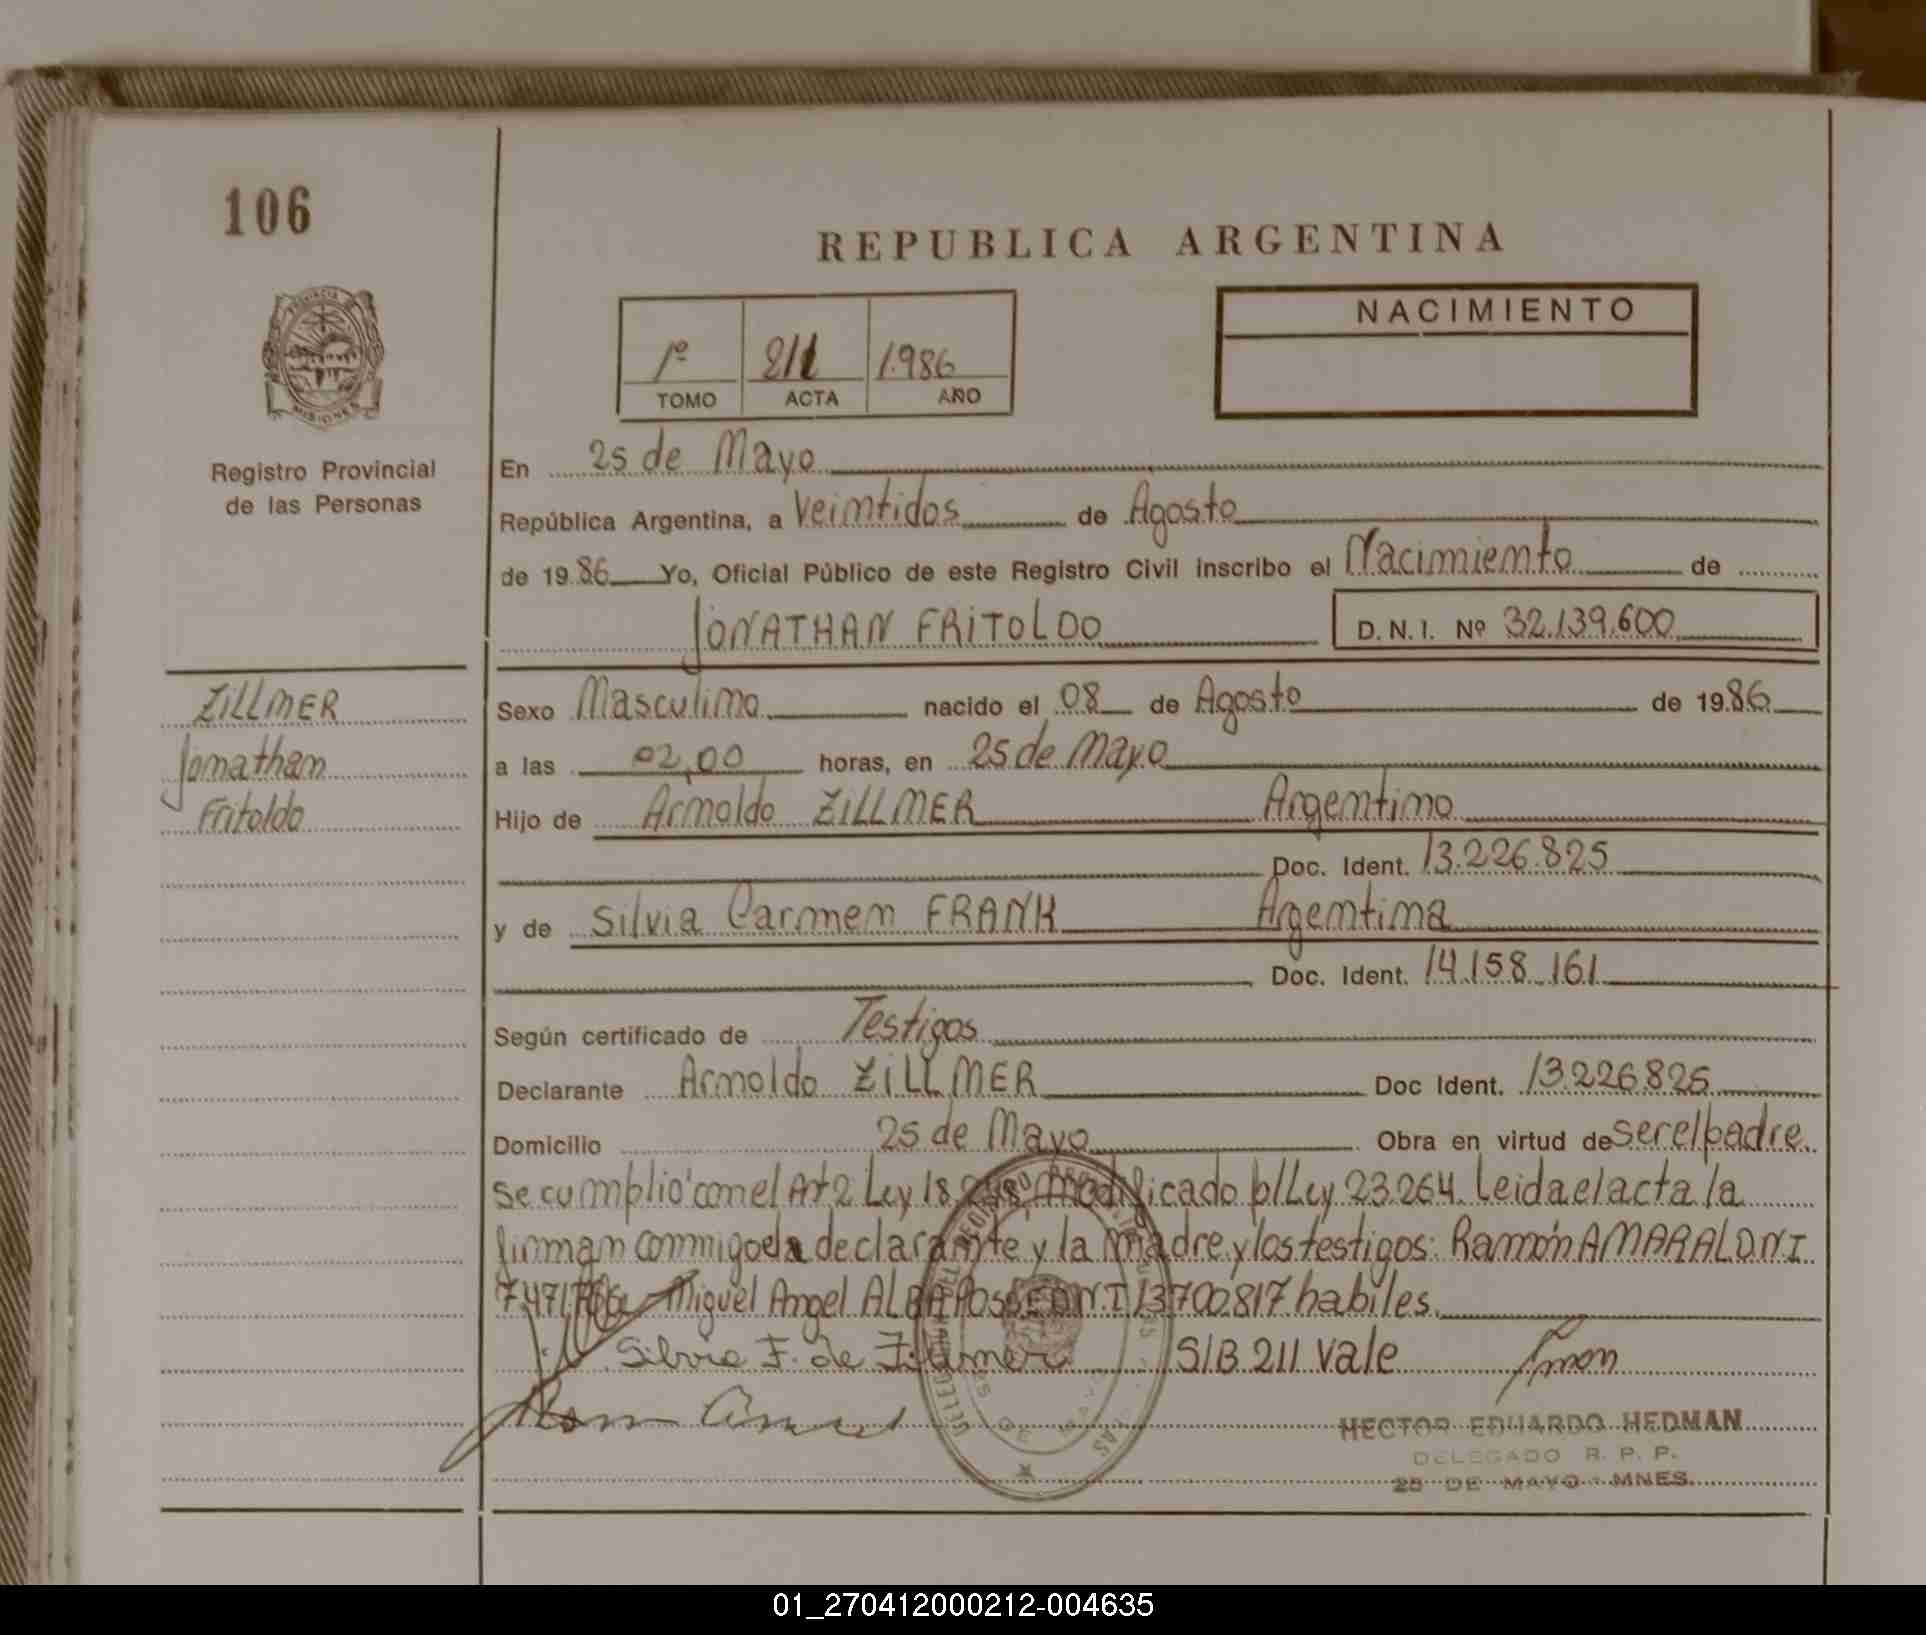 106
REPUBLICA ARGENTINA
PROVINCIA DE
MISIONES
Registro Provincial
de las Personas
1º 211 1.986
TOMO ACTA AÑO
NACIMIENTO
En 25 de Mayo
República Argentina, a Veintidos de Agosto
de 1986 Yo, Oficial Público de este Registro Civil inscribo el Nacimiento de
JONATHAN FRITOLDO D.N.I. Nº 32.139.600
ZILLMER
Jonathan
Fritoldo
Sexo Masculino nacido el 08 de Agosto de 1986
a las 02,00 horas, en 25 de Mayo
Hijo de Arnoldo ZILLMER Argentino
Doc. Ident. 13.226.825
y de Silvia Carmen FRANK Argentina
Doc. Ident. 14.158.161
Según certificado de Testigos
Declarante Arnoldo ZILLMER Doc Ident. 13.226.825
Domicilio 25 de Mayo Obra en virtud de ser el padre.
Se cumplió con el Art 2 Ley 18.248 modificado p/Ley 23.264. Leida el acta la
firman conmigo el declarante y la madre y los testigos: Ramón AMARAL D.N.I.
Miguel Angel ALBA POSSE D.N.I 13700817 habiles.
Silvia F. de Zillmer S/B 211 Vale
HECTOR EDUARDO HEDMAN
DELEGADO R. P. P.
25 DE MAYO - MNES.
01_270412000212-004635